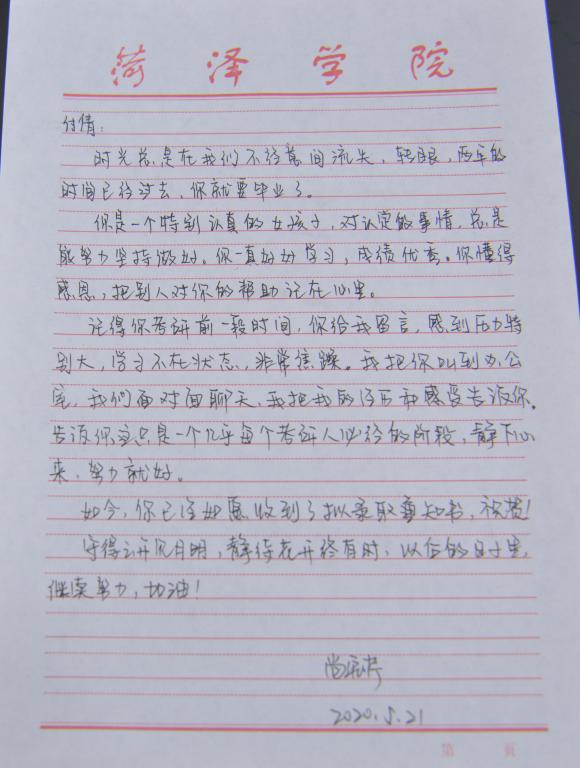 菏泽学院
付倩:
时光总是在我们不经意间流失,转眼,两年的
时间已经过去,你就要毕业了。
你是一个特别认真的女孩子,对认定的事情,总是
能努力坚持做好。你一直好好学习,成绩优秀。你懂得
感恩,把别人对你的帮助记在心里。
记得你考研前一段时间,你给我留言,感到压力特
别大,学习不在状态,非常焦躁。我把你叫到办公
室,我们面对面聊天,我把我的经历和感受告诉你。
告诉你这只是一个几乎每个考研人必经的阶段,静下心
来,努力就好。
如今,你已经如愿收到了拟录取通知书,祝贺!
守得云开见月明,静待花开终有时,以后的日子里,
继续努力,加油!
2020.5.21
第 页